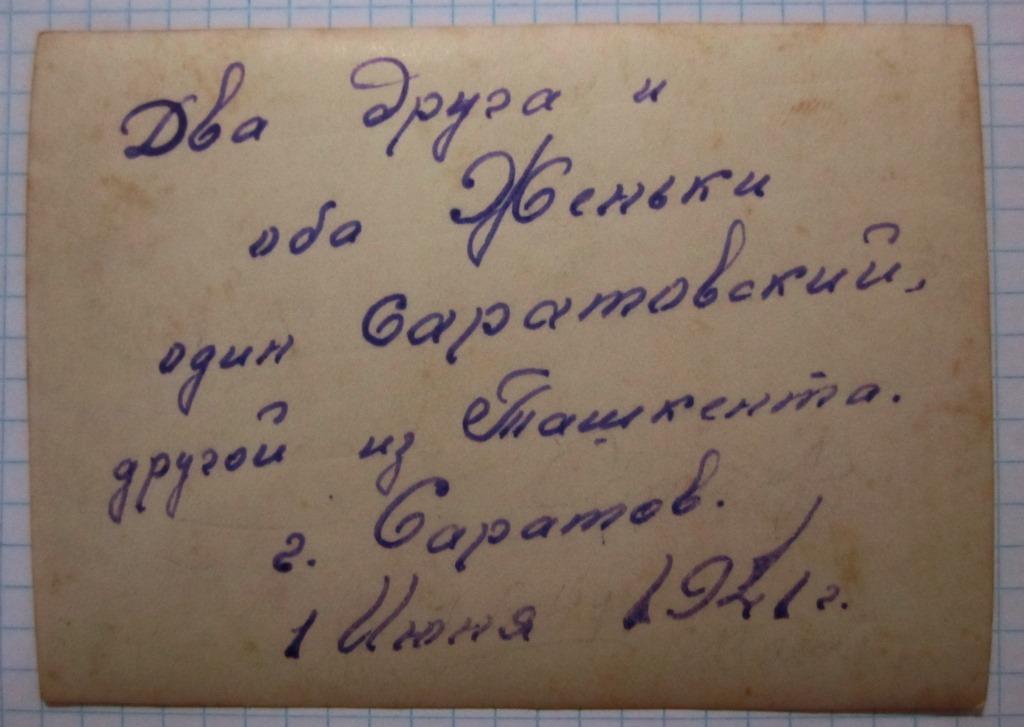 Два друга и
оба Женьки
один Саратовский,
другой из Ташкента.
г. Саратов.
1 Июня 1941 г.